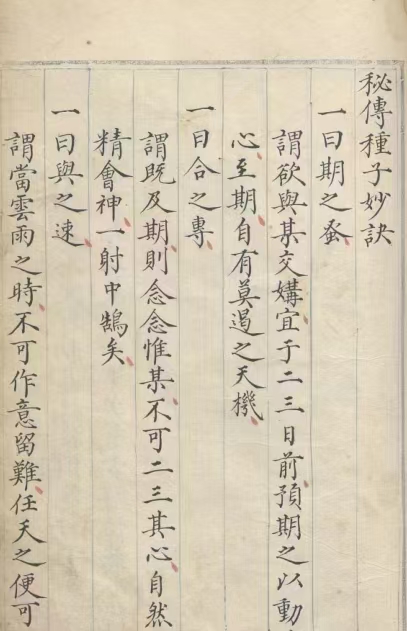 秘傳種子妙訣
一曰期之蚤
謂欲與某交媾宜于二三日前預期之以動
心至期自有莫遏之天機
一曰合之專
謂既及期則念念惟某不可二三其心自然
精會神一射中鵠矣
一曰與之速
謂當雲雨之時不可作意留難任天之便可